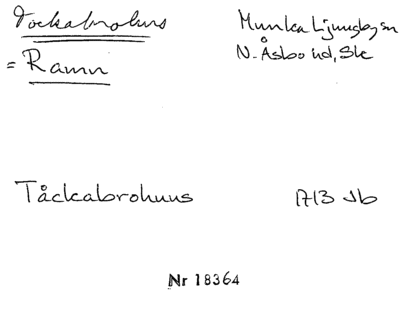 Tockabrohus
Munka Ljungby sn
= Ramn
N. Åsbo hd, Sk
Tåckabrohuus 1713 Jb
Nr 18364